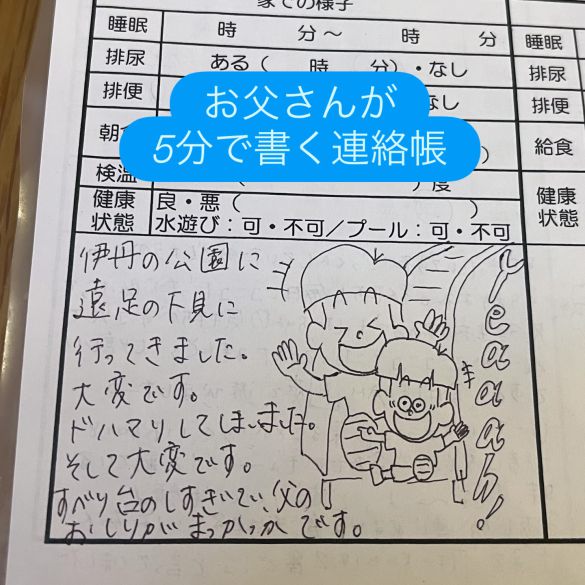 家での様子
睡眠 時 分～ 時 分 睡眠
排尿 ある（ 時 分）・なし 排尿
お父さんが
5分で書く連絡帳
排便 なし 排便
朝 ） 給食
検温 （ ）度
健康状態 良・悪（ ） 健康状態
水遊び：可・不可／プール：可・不可
伊丹の公園に
遠足の下見に
行ってきました。
大変です。
ドハマリしてしまいました。
そして大変です。
すべり台のしすぎで、父の
おしりがまっかっかです。
Yeaaaah!